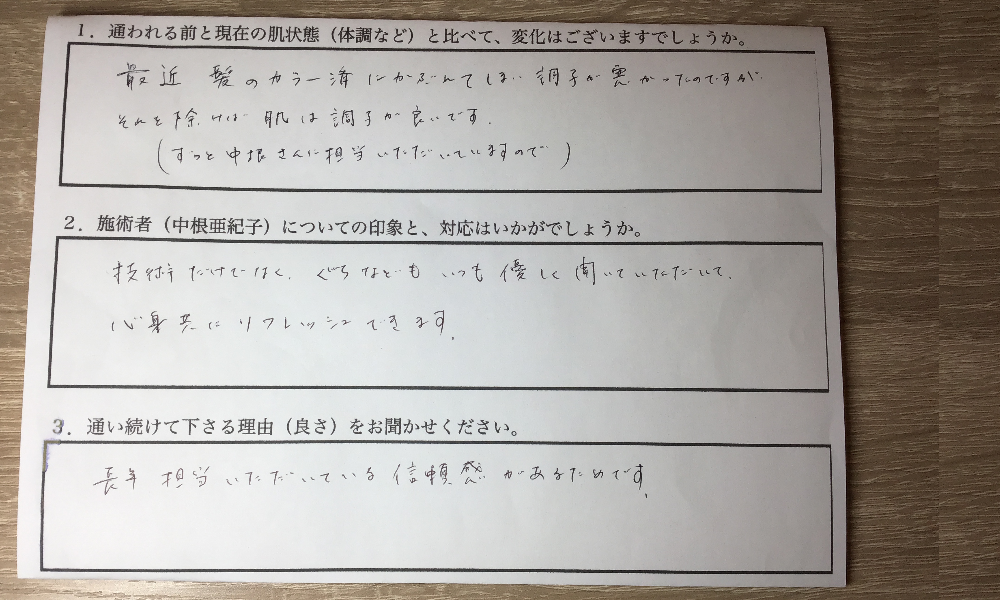 1．通われる前と現在の肌状態（体調など）と比べて、変化はございますでしょうか。
最近 髪のカラー済にかぶれてしまい 調子が悪かったのですが
それを除けば 肌は調子が良いです.
(ずっと中根さんに担当いただいていますので)
2．施術者（中根亜紀子）についての印象と、対応はいかがでしょうか。
技術だけでなく、ぐちなども いつも 優しく聞いていただいて、
心身共にリフレッシュできます.
3．通い続けて下さる理由（良さ）をお聞かせください。
長年 担当いただいている 信頼感があるためです.